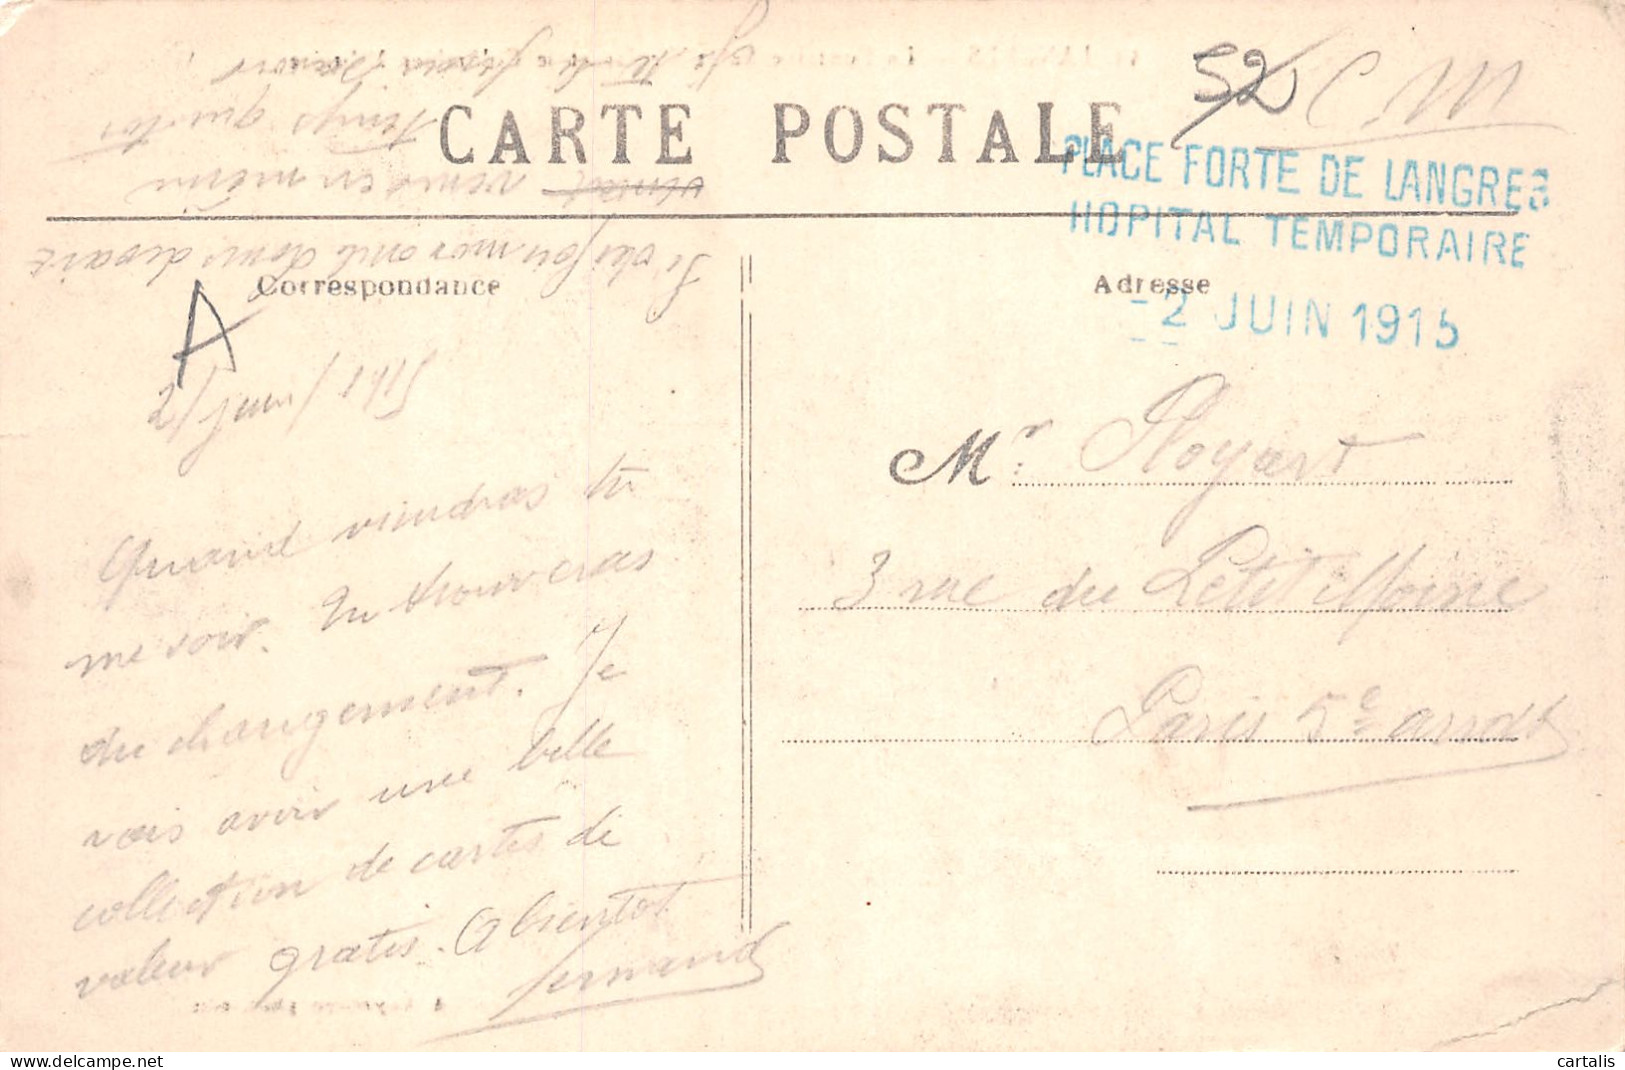 52 CM
CARTE POSTALE
PLACE FORTE DE LANGRES
HOPITAL TEMPORAIRE
- 2 JUIN 1915
Correspondance
A
2/juin/1915
Quand viendras tu
me voir. Tu trouveras
du changement. Je
vais avoir une belle
collection de cartes de
valeur gratis. A bientot
Fernand
venir en même
temps que toi
Adresse
Mr Ployart
3 rue du Petit Moine
Paris 5e arrdt
cartalis